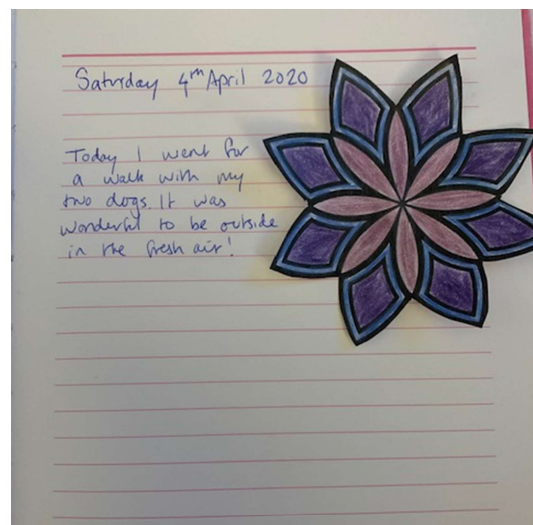 Saturday 4th April 2020
Today I went for
a walk with my
two dogs. It was
wonderful to be outside
in the fresh air!